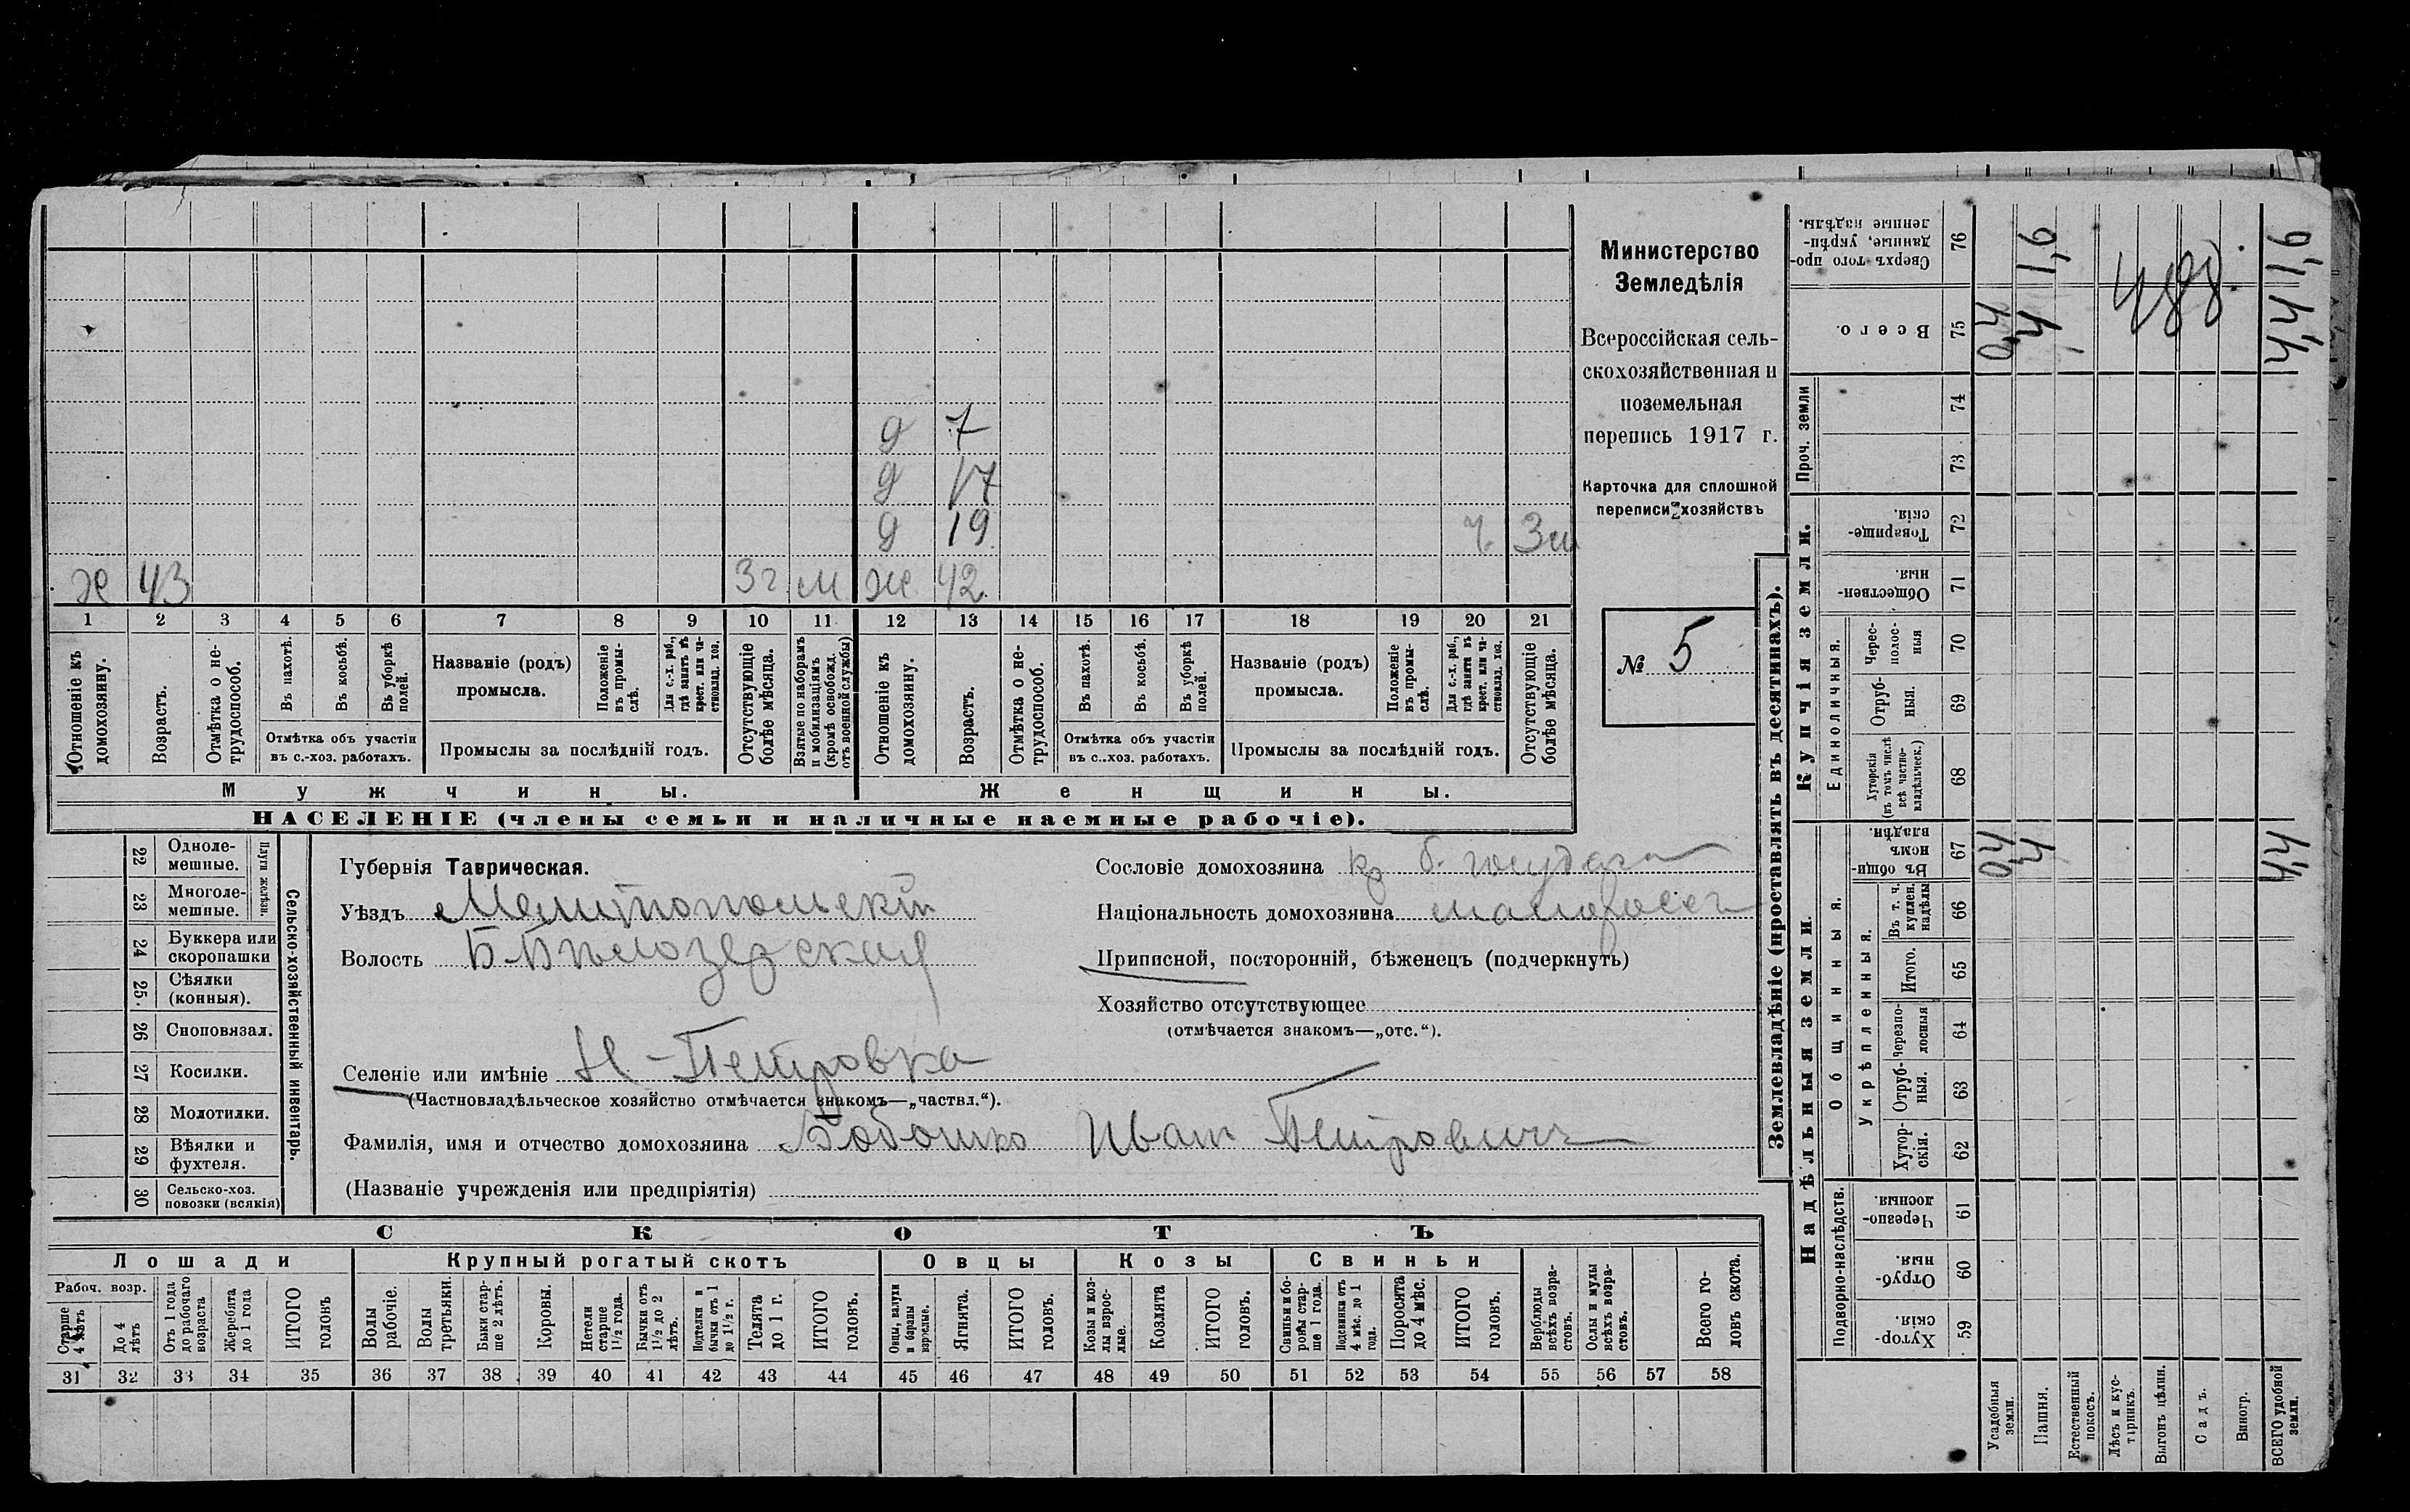 Министерство
Земледѣлія
Всероссійская сель-
скохозяйственная и
поземельная
перепись 1917 г.
Карточка для сплошной
переписи хозяйствъ
№ 5
д 7
д 17
д 19 ч. 3 м
х 43 3 г м ж 42
1 2 3 4 5 6 7 8 9 10 11 12 13 14 15 16 17 18 19 20 21
Отношеніе къ домохозяину.
Возрастъ.
Отмѣтка о не-трудоспособ.
Въ пахотѣ.
Въ косьбѣ.
Въ уборкѣ полей.
Отмѣтка объ участіи
въ с.-хоз. работахъ.
Названіе (родъ)
промысла.
Положеніе въ промы-слѣ.
Для с.-х. раб., гдѣ занятъ въ крест. или ча-стновлад. хоз.
Промыслы за послѣдній годъ.
Отсутствующіе болѣе мѣсяца.
Взятые по наборамъ и мобилизаціямъ (кромѣ освобожд. отъ военной службы)
Отношеніе къ домохозяину.
Возрастъ.
Отмѣтка о не-трудоспособ.
Въ пахотѣ.
Въ косьбѣ.
Въ уборкѣ полей.
Отмѣтка объ участіи
въ с..хоз. работахъ.
Названіе (родъ)
промысла.
Положеніе въ промы-слѣ.
Для с.-х. раб., гдѣ занята въ крест. или ча-стновлад. хоз.
Промыслы за послѣдній годъ.
Отсутствующіе болѣе мѣсяца.
Мужчины.
Женщины.
НАСЕЛЕНІЕ (члены семьи и наличные наемные рабочіе).
22 Одноле-мешные.
23 Многоле-мешные.
Плуги желѣзн.
24 Буккера или скоропашки
25. Сѣялки (конныя).
26 Сноповязал.
27 Косилки.
28 Молотилки.
29 Вѣялки и фухтеля.
30 Сельско-хоз. повозки (всякія)
Сельско-хозяйственный инвентарь.
Губернія Таврическая.
Уѣздъ Мелитопольскій
Волость Б-Бѣлозерская
Селеніе или имѣніе Н-Петровка
(Частновладѣльческое хозяйство отмѣчается знакомъ—„частвл.“).
Фамилія, имя и отчество домохозяина Бабошко Иван Петровичъ
(Названіе учрежденія или предпріятія)
Сословіе домохозяина кр б. государ
Національность домохозяина малоросс
Приписной, посторонній, бѣженецъ (подчеркнуть)
Хозяйство отсутствующее
(отмѣчается знакомъ—„отс.“).
СКОТЪ
Лошади
Крупный рогатый скотъ
Овцы
Козы
Свиньи
Рабоч. возр.
Старше 4 лѣтъ
До 4 лѣтъ
Отъ 1 года до рабочаго возраста
Жеребята до 1 года
ИТОГО головъ
Волы рабочіе.
Волы третьяки.
Быки стар-ше 2 лѣтъ.
Коровы.
Нетели старше 1½ года.
Бычки отъ 1½ до 2 лѣтъ.
Подтелки и бычки отъ 1 до 1½ г.
Телята до 1 г.
ИТОГО головъ.
Овцы, валухи и бараны взрослые.
Ягнята.
ИТОГО головъ.
Козы и коз-лы взрос-лые.
Козлята
ИТОГО головъ.
Свиньи и бо-ровы стар-ше 1 года.
Подсвинки отъ 4 мѣс. до 1 года.
Поросята до 4 мѣс.
ИТОГО головъ.
Верблюды всѣхъ возра-стовъ.
Ослы и мулы всѣхъ возра-стовъ.
Всего го-ловъ скота.
31 32 33 34 35 36 37 38 39 40 41 42 43 44 45 46 47 48 49 50 51 52 53 54 55 56 57 58
Землевладѣніе (проставлять въ десятинахъ).
Купчія земли.
Надѣльныя земли.
Сверхъ того про-данные, укрѣп-ленные надѣлы. 76 1,6 1,6
Всего. 75 0,4 4 4,4
488
Проч. земли
74
73
Товарище-скія. 72
Обществен-ныя. 71
Единоличныя.
Черес-полос-ныя 70
Отруб-ныя. 69
Хуторскія (въ томъ числѣ всѣ частно-владѣльческ.) 68
Общинныя.
Въ общин-номъ владѣн. 67 0,4 4 4,4
Укрѣпленныя.
Въ т. ч. куплен. надѣлы 66
Итого. 65
Черезпо-лосныя 64
Отруб-ныя. 63
Хутор-скія. 62
Подворно-наслѣдств.
Черезпо-лосныя. 61
Отруб-ныя. 60
Хутор-скія. 59
Усадебныя земли.
Пашня.
Естественный покосъ.
Лѣсъ и кус-тарникъ.
Выгонъ цѣлин.
Садъ.
Виногр.
ВСЕГО удобной земли.